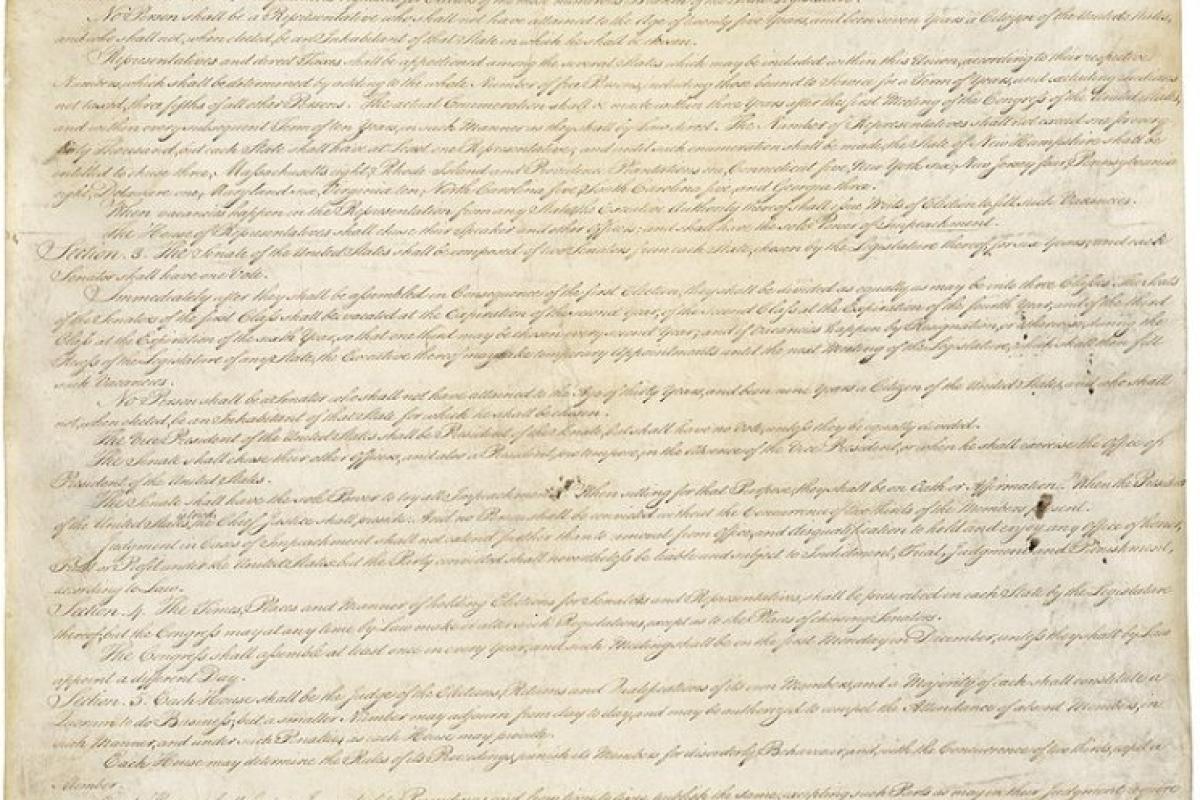 No Person shall be a Representative who shall not have attained to the Age of twenty five Years, and been seven Years a Citizen of the United States,
and who shall not, when elected, be an Inhabitant of that State in which he shall be chosen.
Representatives and direct Taxes shall be apportioned among the several States which may be included within this Union, according to their respective
Numbers, which shall be determined by adding to the whole Number of free Persons, including those bound to Service for a Term of Years, and excluding Indians
not taxed, three fifths of all other Persons. The actual Enumeration shall be made within three Years after the first Meeting of the Congress of the United States,
and within every subsequent Term of ten Years, in such Manner as they shall by Law direct. The Number of Representatives shall not exceed one for every
thirty Thousand, but each State shall have at Least one Representative; and until such enumeration shall be made, the State of New Hampshire shall be
entitled to chuse three, Massachusetts eight, Rhode-Island and Providence Plantations one, Connecticut five, New-York six, New Jersey four, Pennsylvania
eight, Delaware one, Maryland six, Virginia ten, North Carolina five, South Carolina five, and Georgia three.
When vacancies happen in the Representation from any State, the Executive Authority thereof shall issue Writs of Election to fill such Vacancies.
The House of Representatives shall chuse their Speaker and other Officers; and shall have the sole Power of Impeachment.
Section. 3. The Senate of the United States shall be composed of two Senators from each State, chosen by the Legislature thereof, for six Years; and each
Senator shall have one Vote.
Immediately after they shall be assembled in Consequence of the first Election, they shall be divided as equally as may be into three Classes. The Seats
of the Senators of the first Class shall be vacated at the Expiration of the second Year, of the second Class at the Expiration of the fourth Year, and of the third
Class at the Expiration of the sixth Year, so that one third may be chosen every second Year; and if Vacancies happen by Resignation, or otherwise, during the
Recess of the Legislature of any State, the Executive thereof may make temporary Appointments until the next Meeting of the Legislature, which shall then fill
such Vacancies.
No Person shall be a Senator who shall not have attained to the Age of thirty Years, and been nine Years a Citizen of the United States, and who shall
not, when elected, be an Inhabitant of that State for which he shall be chosen.
The Vice President of the United States shall be President of the Senate, but shall have no Vote, unless they be equally divided.
The Senate shall chuse their other Officers, and also a President pro tempore, in the Absence of the Vice President, or when he shall exercise the Office of
President of the United States.
The Senate shall have the sole Power to try all Impeachments. When sitting for that Purpose, they shall be on Oath or Affirmation. When the President
of the United States is tried, the Chief Justice shall preside: And no Person shall be convicted without the Concurrence of two thirds of the Members present.
Judgment in Cases of Impeachment shall not extend further than to removal from Office, and disqualification to hold and enjoy any Office of honor,
Trust or Profit under the United States: but the Party convicted shall nevertheless be liable and subject to Indictment, Trial, Judgment and Punishment,
according to Law.
Section. 4. The Times, Places and Manner of holding Elections for Senators and Representatives, shall be prescribed in each State by the Legislature
thereof; but the Congress may at any time by Law make or alter such Regulations, except as to the Places of chusing Senators.
The Congress shall assemble at least once in every Year, and such Meeting shall be on the first Monday in December, unless they shall by Law
appoint a different Day.
Section. 5. Each House shall be the Judge of the Elections, Returns and Qualifications of its own Members, and a Majority of each shall constitute a
Quorum to do Business; but a smaller Number may adjourn from day to day, and may be authorized to compel the Attendance of absent Members, in
such Manner, and under such Penalties as each House may provide.
Each House may determine the Rules of its Proceedings, punish its Members for disorderly Behaviour, and, with the Concurrence of two thirds, expel a
Member.